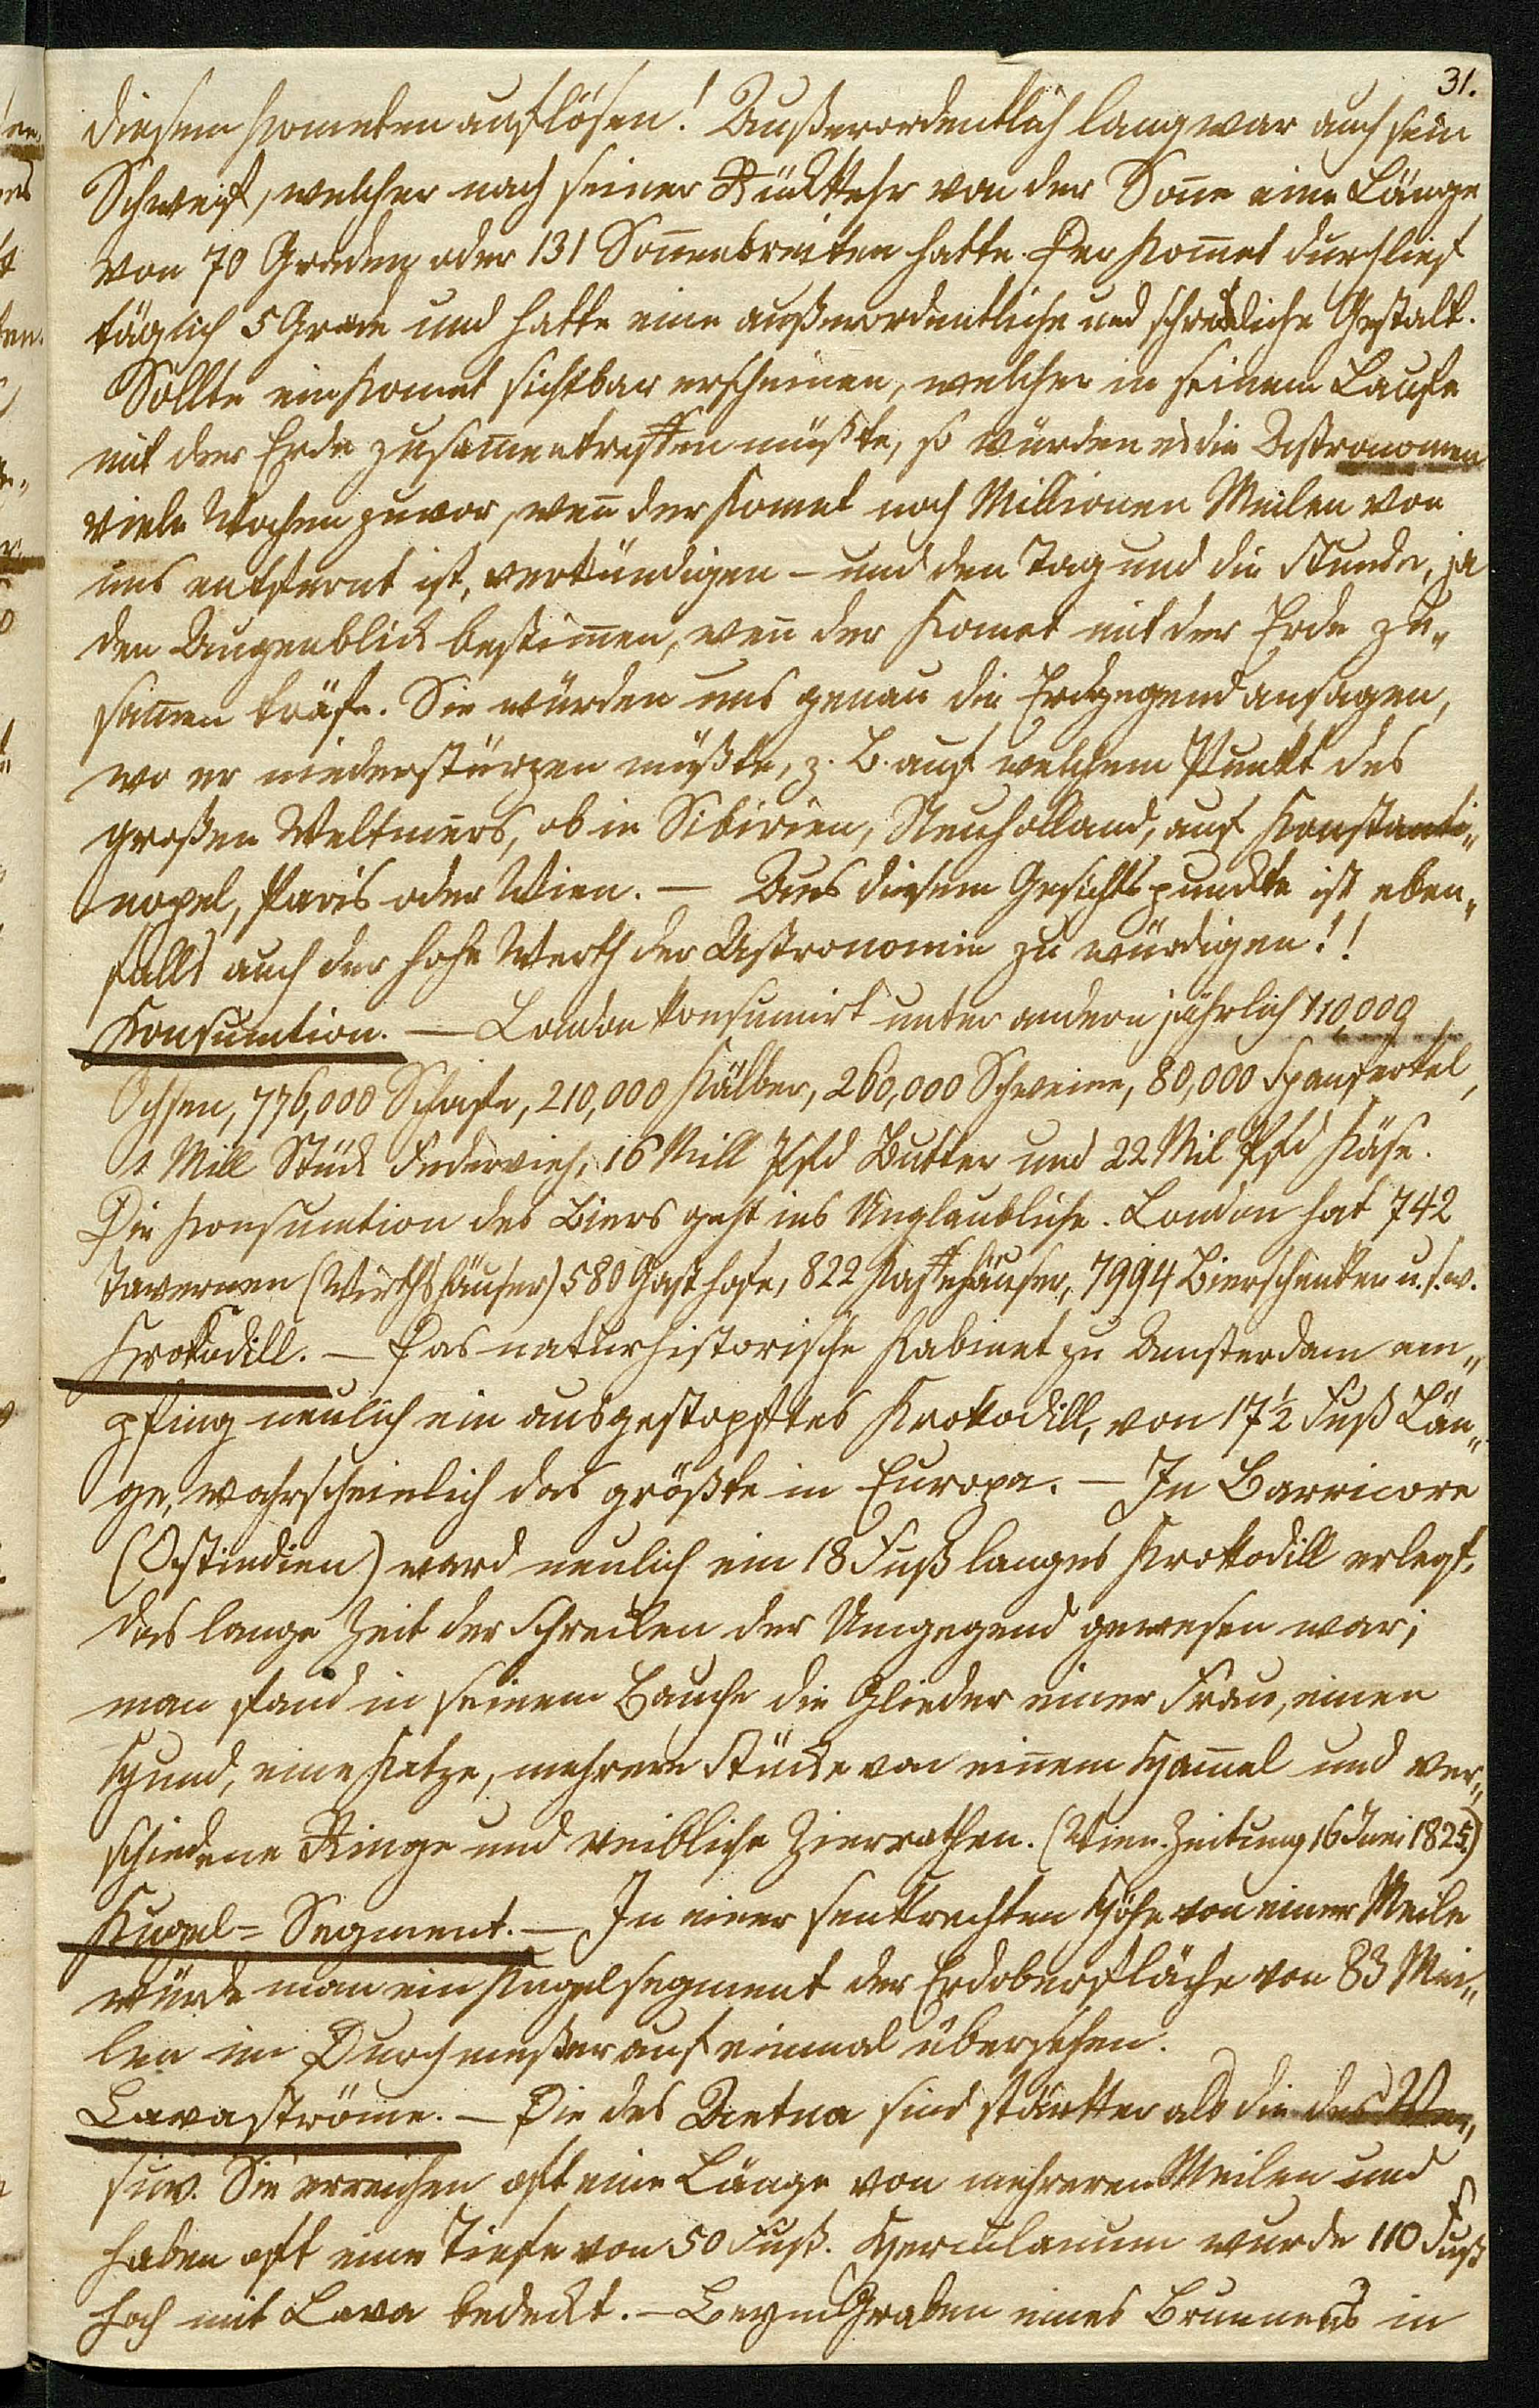 31.
diesem Kometen auflösen! Außerordentlich lang war auch sein
Schweif, welcher nach seiner Rückkehr von der Soñe eine Länge
von 70 Graden oder 131 Soñenbreiten hatte. Der Komet durchlief
täglich 5 Grade und hatte eine außerordentliche und schreckliche Gestalt.
Sollte ein Komet sichtbar erscheinen, welcher in seinem Laufe
mit der Erde zusam̃entreffen müßte, so würden es die Astronomen
viele Wochen zuvor, weñ der Komet noch Millionen Meilen von
uns entfernt ist, verkündigen – und den Tag und die Stunde, ja
den Augenblick bestim̃en, weñ der Komet mit der Erde zu„
sam̃en träfe. Sie würden uns genau die Erdgegend ansagen,
wo er niederstürzen müßte, z. B. auf welchem Punkt des
großen Weltmeers, ob in Sibirien, Neuholland, auf Konstanti„
nopel, Paris oder Wien. — Aus diesem Gesichtspunckte ist eben„
falls auch der hohe Werth der Astronomie zu würdigen!!
Konsumtion. — London konsumirt unter andern jährlich 110,000
Ochsen, 776,000 Schafe, 210,000 Kälber, 260,000 Schweine, 80,000 Spanferkel,
1 Mill Stück Federvieh, 16 Mill Pfd Butter und 22 Mil Pfd Käse.
Die Konsumtion des Biers geht ins Unglaubliche. London hat 742
Tavernen (Wirthshäuser) 580 Gasthofe, 822 Kaffehäuser, 7994 Bierschenken u.s.w.
Krokodill. — Das naturhistorische Kabinet zu Amsterdam em„
pfing neulich ein ausgestopftes Krokodill, von 17½ Fuß Län„
ge, wahrscheinlich das größte in Europa. — In Barricore
(Ostindien) ward neulich ein 18 Fuß langes Krokodill erlegt,
das lange Zeit der Schrecken der Umgegend gewesen war;
man fand in seinem Bauche die Glieder einer Frau, einen
Hund, eine Katze, mehrere Stücke von einem Ham̃el und ver„
schiedene Ringe und weibliche Zierrathen. (Wien. Zeitung 16 Juni 1825.)
Kugel= Segment. — In einer senkrechten Höhe von einer Meile
würde man ein Kugelsegment der Erdoberfläche von 83 Mei„
len im Durchmeßer auf einmal übersehen.
Lavaströme. — Die des Aetna sind stärker als die des Ve„
suv. Sie erreichen oft eine Länge von mehreren Meilen und
haben oft eine Tiefe von 50 Fuß. Herculanum wurde 110 Fuß
hoch mit Lava bedeckt. — Beym Graben eines Brunnens in